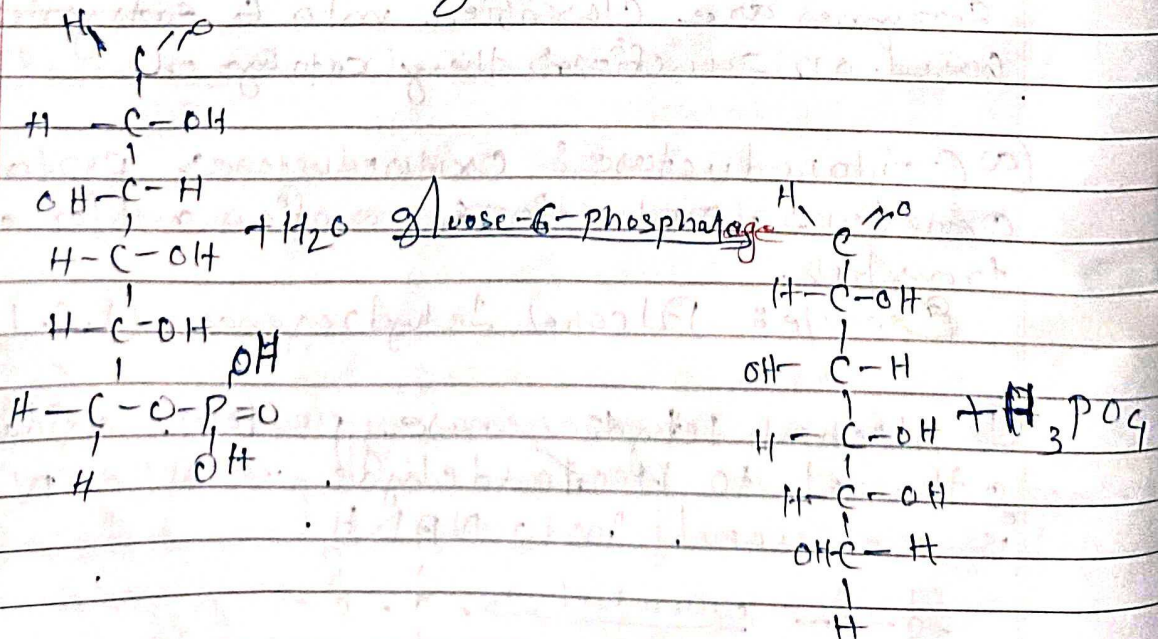 H O
C
H - C - OH
OH - C - H
H - C - OH
H - C - OH
OH
H - C - O - P = O
H OH
+ H2O gluose-6-phosphatage
H O
C
H - C - OH
OH - C - H
H - C - OH
H - C - OH
OH - C - H
H
+ H3PO4